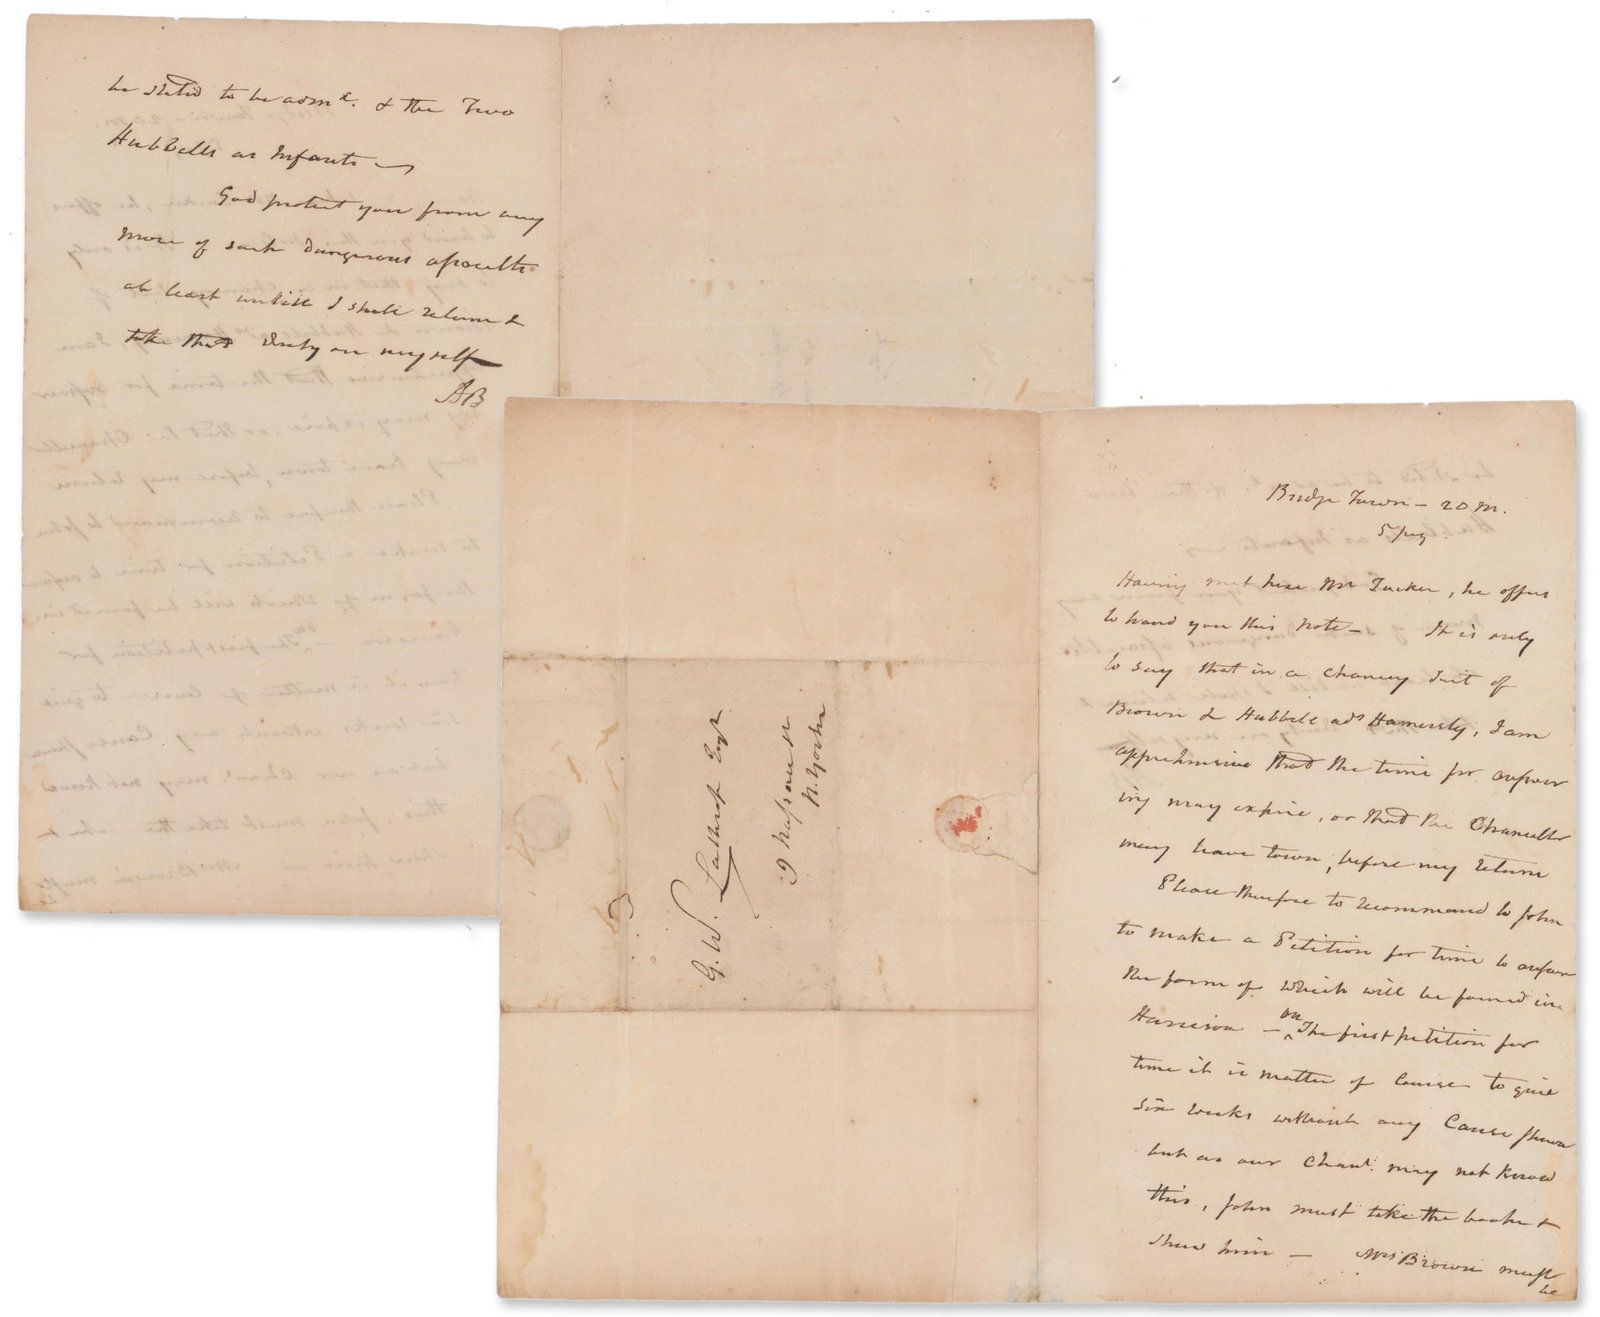 Bridge Town – 20 M.
Having met here Mr Tucker, he offers
to hand you this note – It is only
to say that in a chancy Suit of
Brown & Hubbell ads Hamersly, I am
apprehensive that the time for answer
ing may expire, or that the Chancellor
may leave town, before my return
Please therefore to recommend to John
to make a Petition for time to answer
the form of which will be found in
Harrison – on The first petition for
time it is matter of Course to give
six weeks without any Cause shewn
but as our Chanr. may not know
this, John must take the book &
shew him – Mrs Brown must
be
be stated to be admx. & the Two
Hubbells as Infants –
God protect you from any
more of such dangerous assaults
at least untill I shall return &
take that duty on myself
AB
G. W. Lathrop Esqr
9 Nassau st
N. York